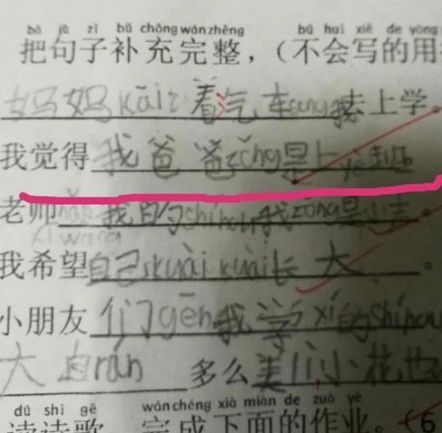 bǎ jù zi bǔ chōng wán zhěng bú huì xiě de yòng
把句子补充完整，（不会写的用
妈妈kāi着汽车sòng我去上学
我觉得我爸爸zǒng是上
老师我的shíhou我zǒng是
xī wàng
我希望自己kuài kuài长大。
小朋友们gēn我学xí的shíhou
大自rán多么美
dú shī gē wán chéng xià miàn de zuò yè
读诗歌 完成下面的作业。（6